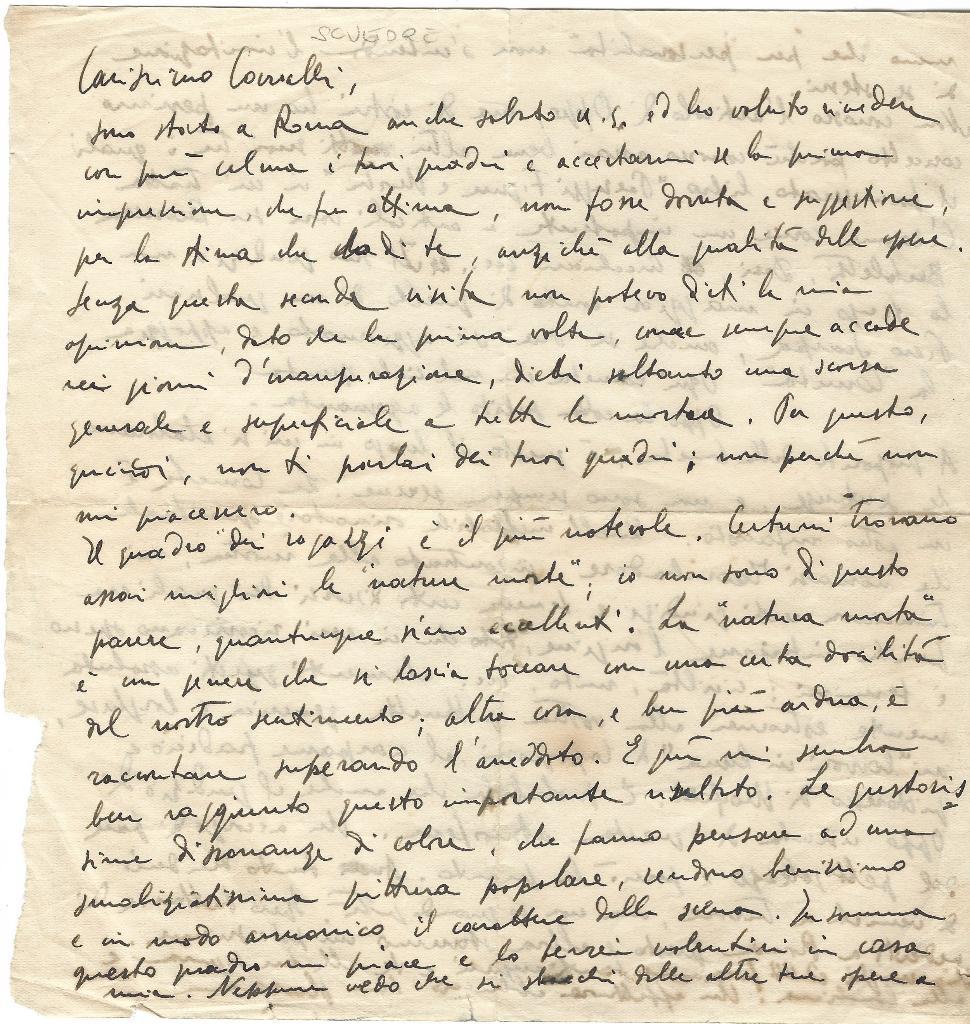 Carissimo Corselli,
sono stato a Roma anche sabato u.s. ed ho voluto rivedere
con più calma i tuoi quadri e accertarmi se la prima
impressione, che fu ottima, non fosse dovuta a suggestione,
per la stima che ho di te, anziché alla qualità delle opere.
Senza questa seconda visita non potevo dirti la mia
opinione, dato che la prima volta, come sempre accade
nei giorni d'inaugurazione, diedi soltanto una scorsa
generale e superficiale a tutta la mostra. Per questo,
quindi, non ti parlai dei tuoi quadri; non perché non
mi piacessero.
Il quadro dei ragazzi è il più notevole. Certuni trovano
assai migliori le "nature morte"; io non sono di questo
parere, quantunque siano eccellenti. La "natura morta"
è un genere che si lascia toccare con una certa docilità
del nostro sentimento; altra cosa, e ben più ardua, è
raccontare superando l'aneddoto. E più mi sembra
ben raggiunto questo importante risultato. Le gustosis
sime dissonanze di colore, che fanno pensare ad una
smaliziatissima pittura popolare, rendono benissimo
e in modo armonico il carattere della scena. Insomma
questo quadro mi piace e lo terrei volentieri in casa
mia. Neppure vedo che si stacchi dalle altre tue opere a